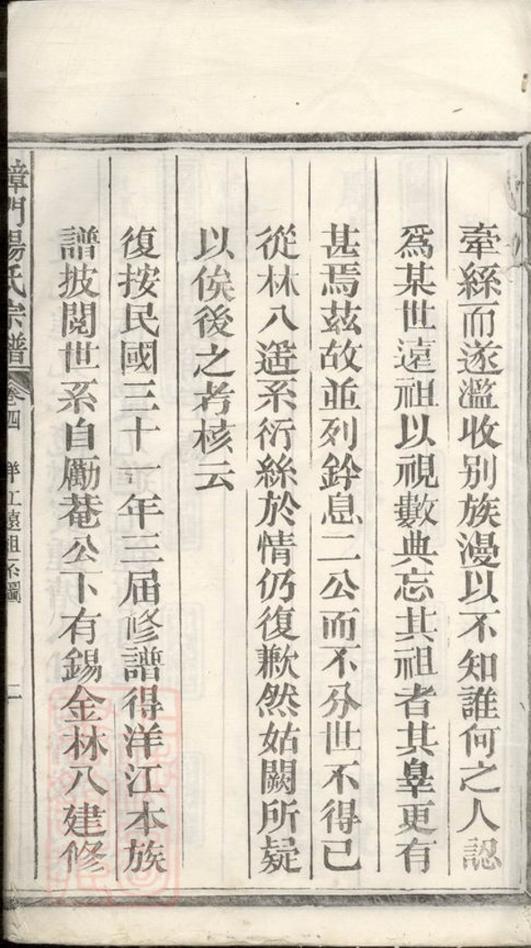 牽絲而遂濫收别族漫以不知誰何之人認
爲某世遠祖以視數典忘其祖者其辠更有
甚焉茲故並列鈐息二公而不分世不得已
從林八遥系衍絲於情仍復歉然姑闕所疑
以俟後之考核云
復按民國三十一年三届修譜得洋江本族
譜披閲世系自勵菴公下有錫金林八建修
門楊氏宗譜 卷四 洋江遠祖系圖 二